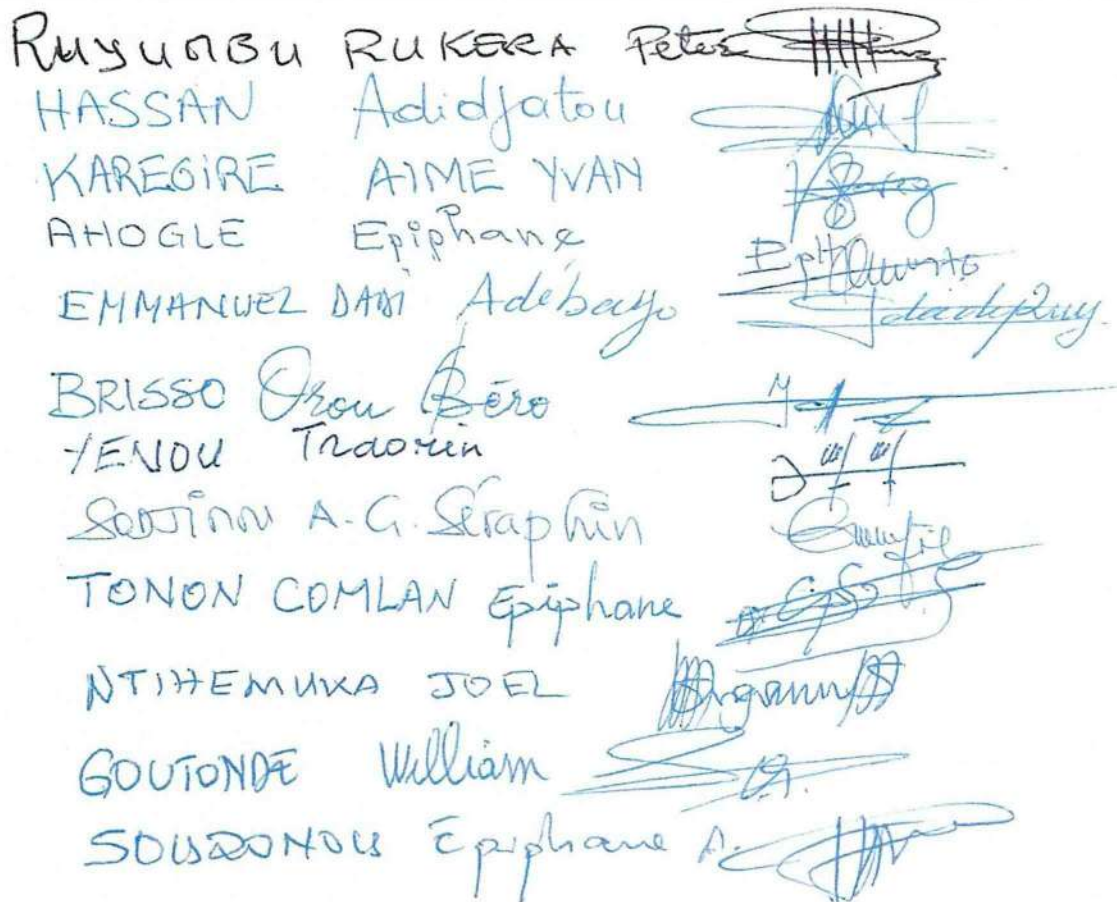 RUYUMBU RUKERA Peter
HASSAN Adidjatou
KAREGIRE AIME YVAN
AHOGLE Epiphane
EMMANUEL DADI Adébayo
BRISSO Orou Béro
YENOU Traorin
SODJINOU A.G. Séraphin
TONON COMLAN Epiphane
NTIHEMUKA JOEL
GOUTONDE William
SOUDONOU Epiphane A.